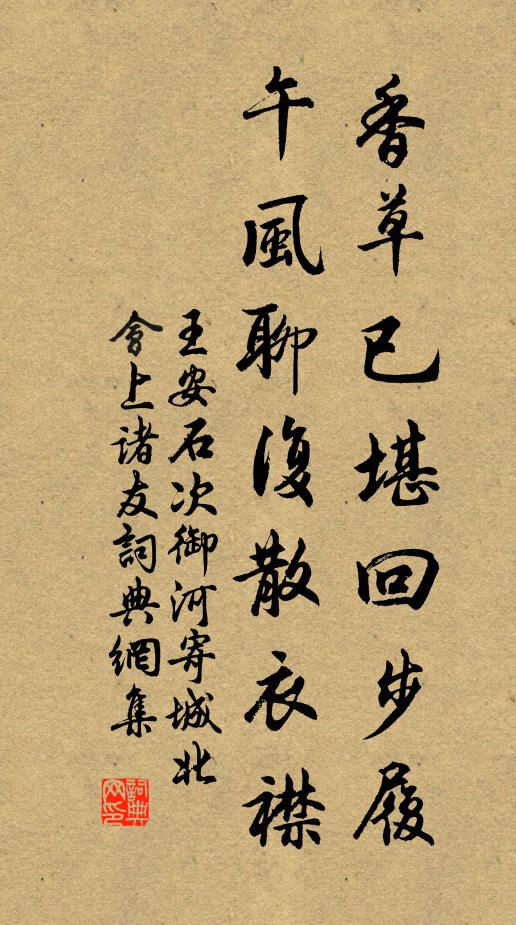 香草已堪回步履
午風聊復散衣襟
王安石次御河寄城北
會上諸友詞典網集
詞典網印